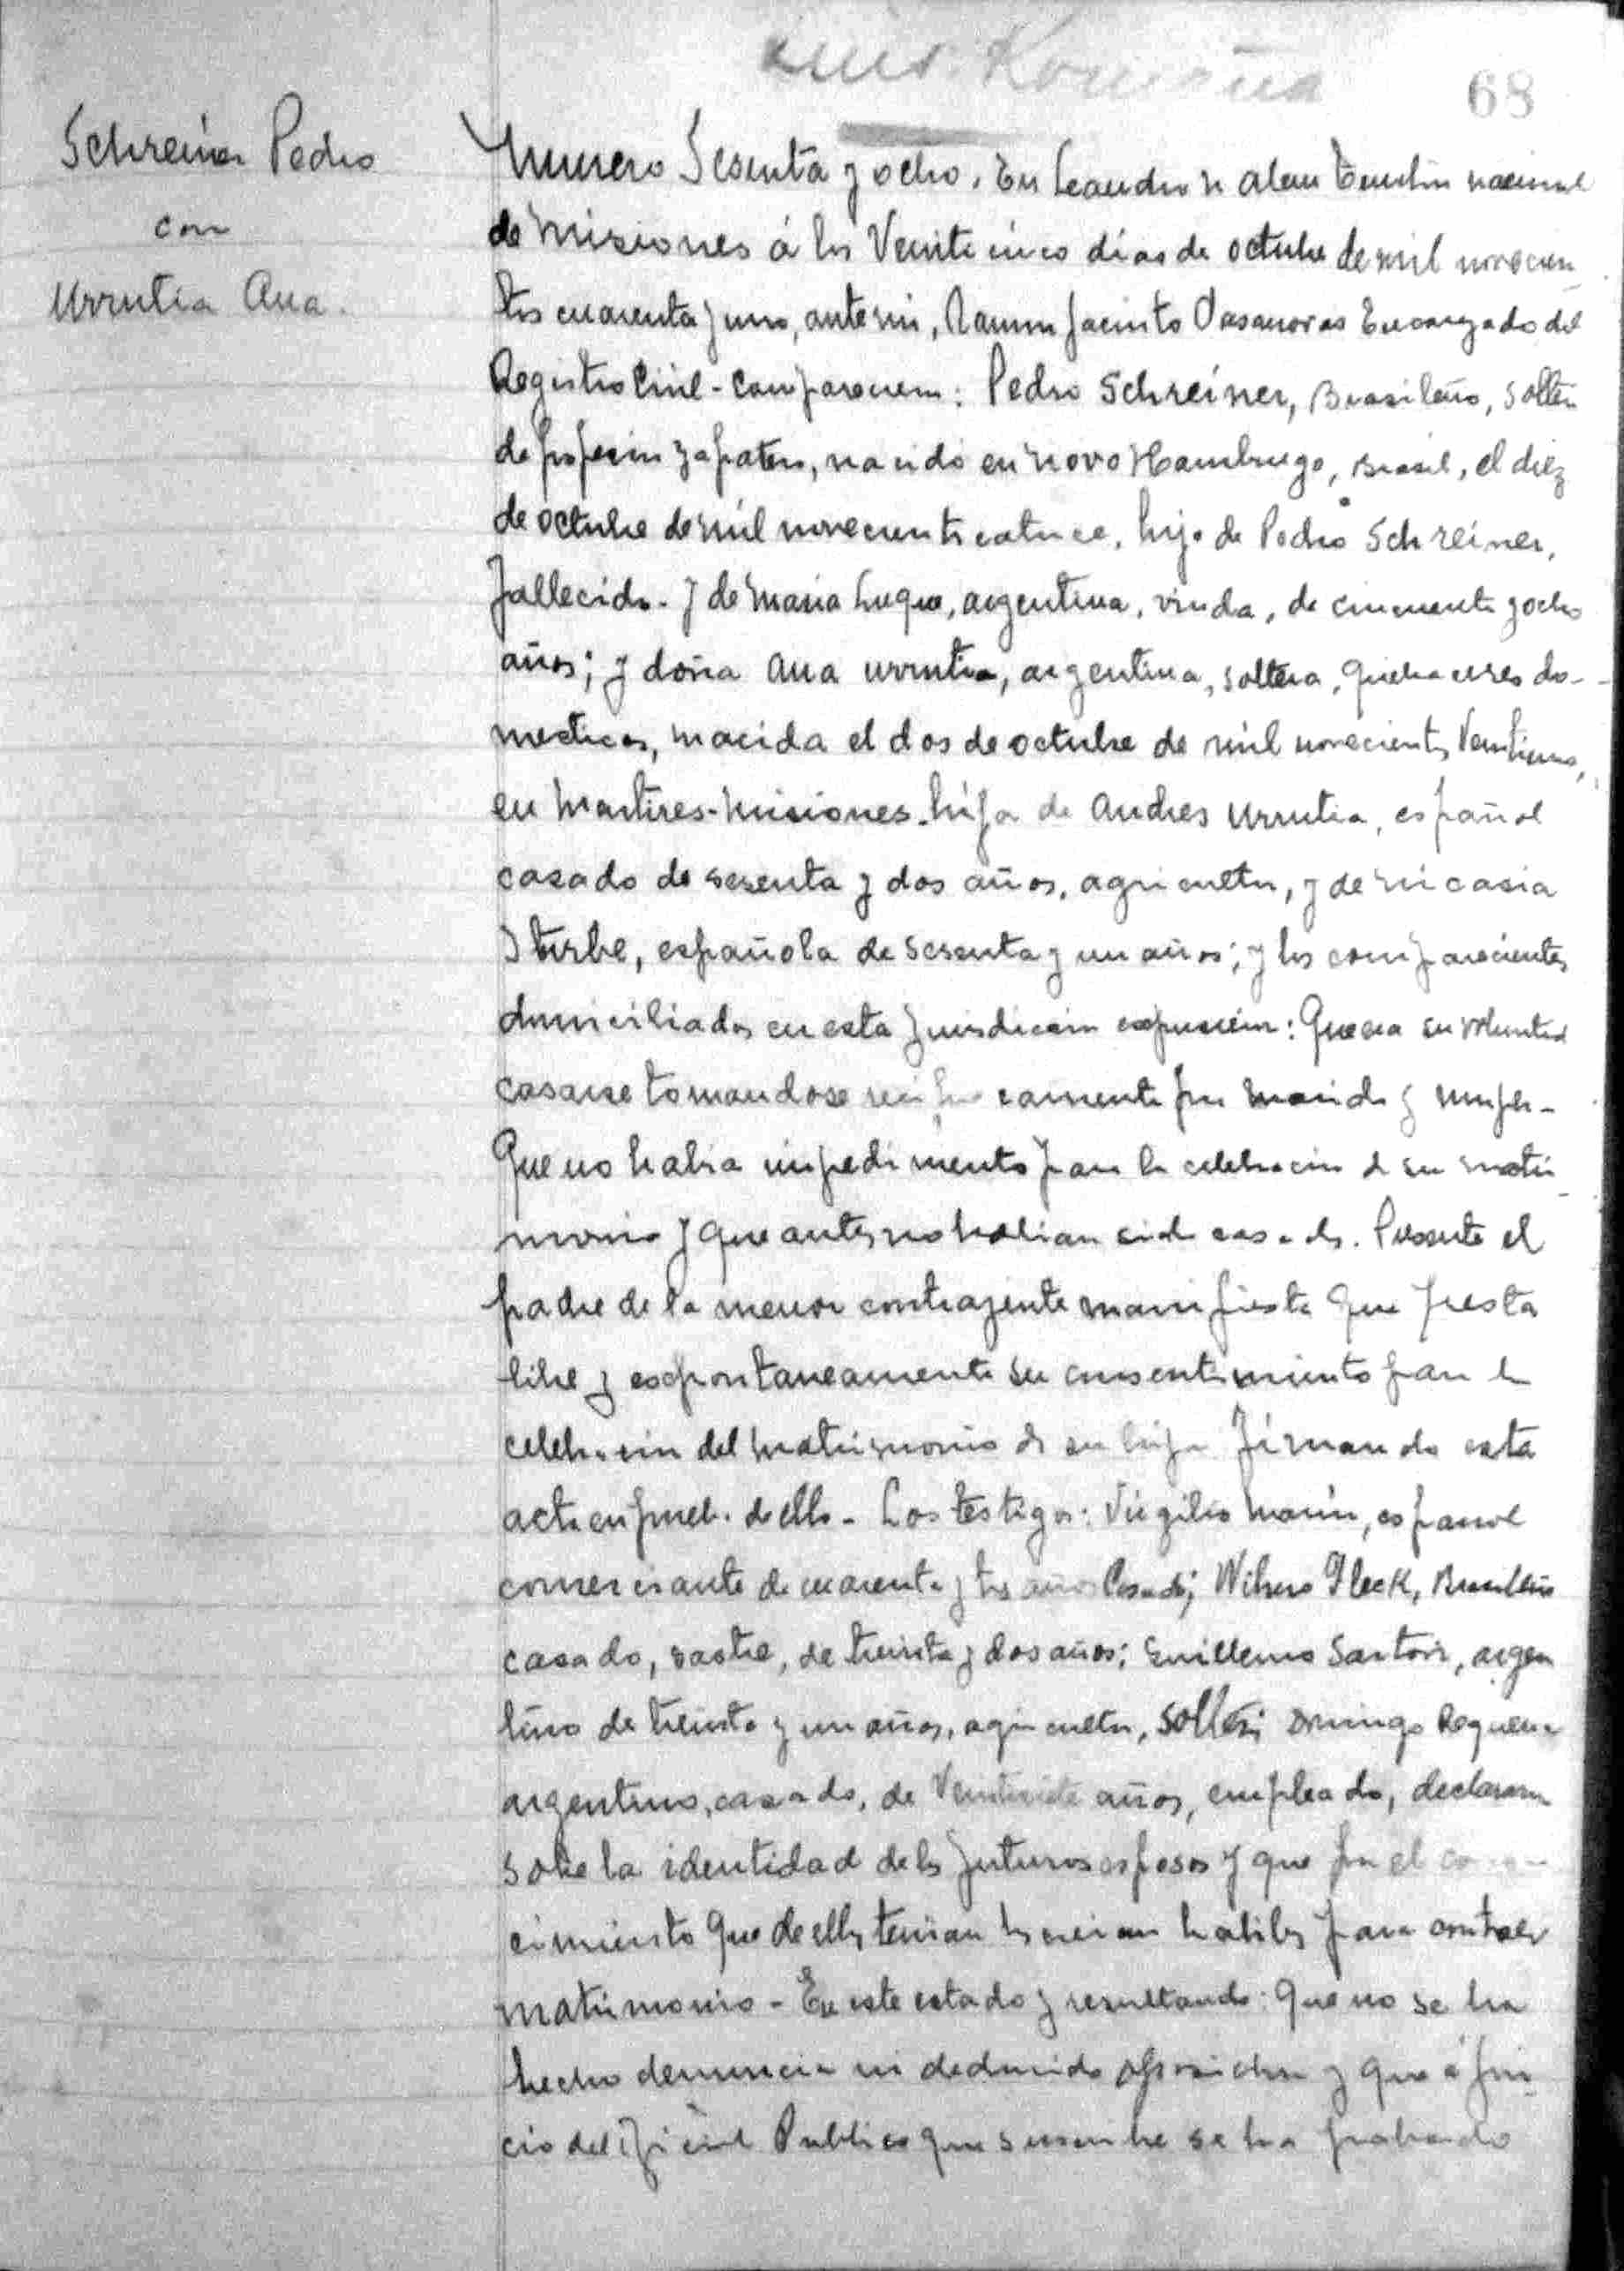 68
Schreiner Pedro
con
Urrutia Ana.
Numero Sesenta y ocho. En Leandro N Alem Territorio nacional
de Misiones á los Veinte cinco días de octubre de mil novecien
tos cuarenta y uno, ante mi, Ramon Jacinto Casanovas Encargado del
Registro Civil - Comparecen: Pedro Schreiner, Brasileño, solter
de profesion zapatero, nacido en Novo Hamburgo, Brasil, el diez
de octubre de mil novecientos catorce, hijo de Pedro Schreiner,
fallecido. y de Maria Luque, argentina, viuda, de cincuenta y ocho
años; y doña Ana Urrutia, argentina, soltera, quehaceres do-
mesticos, nacida el dos de octubre de mil novecientos Veintiuno,
en Martires-Misiones. hija de Andres Urrutia, español
casado de sesenta y dos años, agricultor, y de Nicasia
Iturbe, española de sesenta y un años; y los comparecientes
domiciliados en esta Jurisdicción expusieron: Que era su voluntad
casarse tomandose reciprocamente por marido y mujer-
Que no habia impedimento para la celebracion de su matri
monio y que antes no habian sido casados. Presente el
padre de la menor contrayente manifiesta que presta
libre y espontaneamente su consentimiento para la
celebracion del matrimonio de su hija firmando esta
acta en prueba de ello - Los testigos: Virgilio Marin, español
comerciante de cuarenta y tres años Casado; Fleck, Brasileño
casado, sastre, de treinta y dos años; Guillermo Sartori, argen
tino de treinta y un años, agricultor, soltero; Domingo Requena
argentino, casado, de Veintisiete años, empleado, declararon
sobre la identidad de los futuros esposos y que por el cono-
cimiento que de ellos tenian los creian habiles para contraer
matrimonio - En este estado y resultando: Que no se ha
hecho denuncia ni deducido oposicion y que á jui
cio del Oficial Publico que suscribe se ha probado